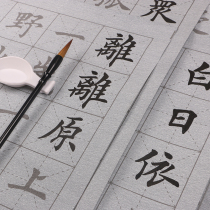 白日依
眾
離離原
一
野
上